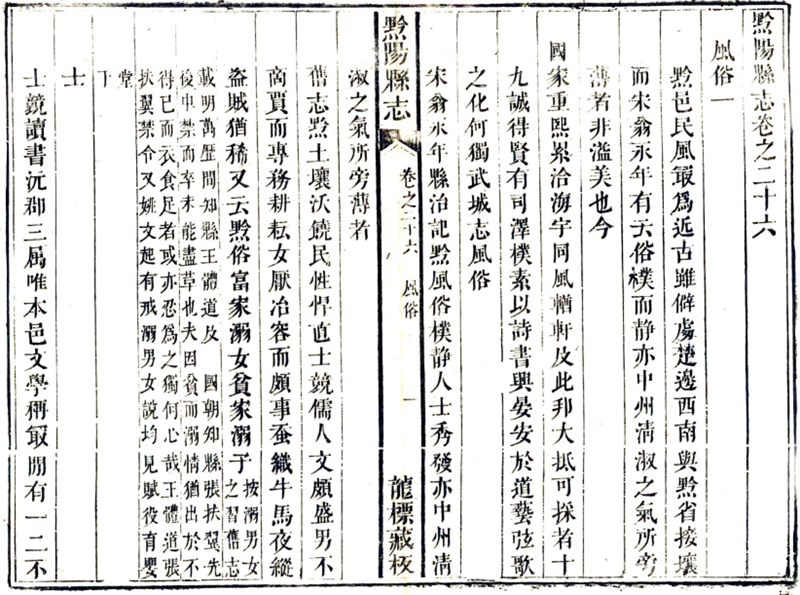 黔陽縣志卷之二十六
風俗一
黔邑民風最爲近古雖僻處楚邊西南與黔省接壤
而宋翁永年有云俗樸而静亦中州淸淑之氣所旁
薄者非溢美也今
國家重熙累洽海宇同風輶軒及此邦大抵可採者十
九誠得賢有司澤樸素以詩書興晏安於道藝弦歌
之化何獨武城志風俗
宋翁永年縣治記黔風俗樸静人士秀發亦中州淸
黔陽縣志
卷之二十六
風俗
一
龍標藏板
淑之氣所旁薄者
舊志黔土壤沃饒民性悍直士競儒人文頗盛男不
商賈而專務耕耘女厭冶容而頗事蚕織牛馬夜縱
盜賊猶稀又云黔俗富家溺女貧家溺子
按溺男女
之習舊志
載明萬歷間知縣王體道及 國朝知縣張扶翼先
後申禁而卒未能盡草也夫因貧而溺情猶出於不
得已而衣食足者或亦忍爲之獨何心哉王體道張
扶翼禁令又姚文起有戒溺男女說均見賦役育嬰
堂
下
士
士競讀書沅郡三属唯本邑文學稱最間有一二不